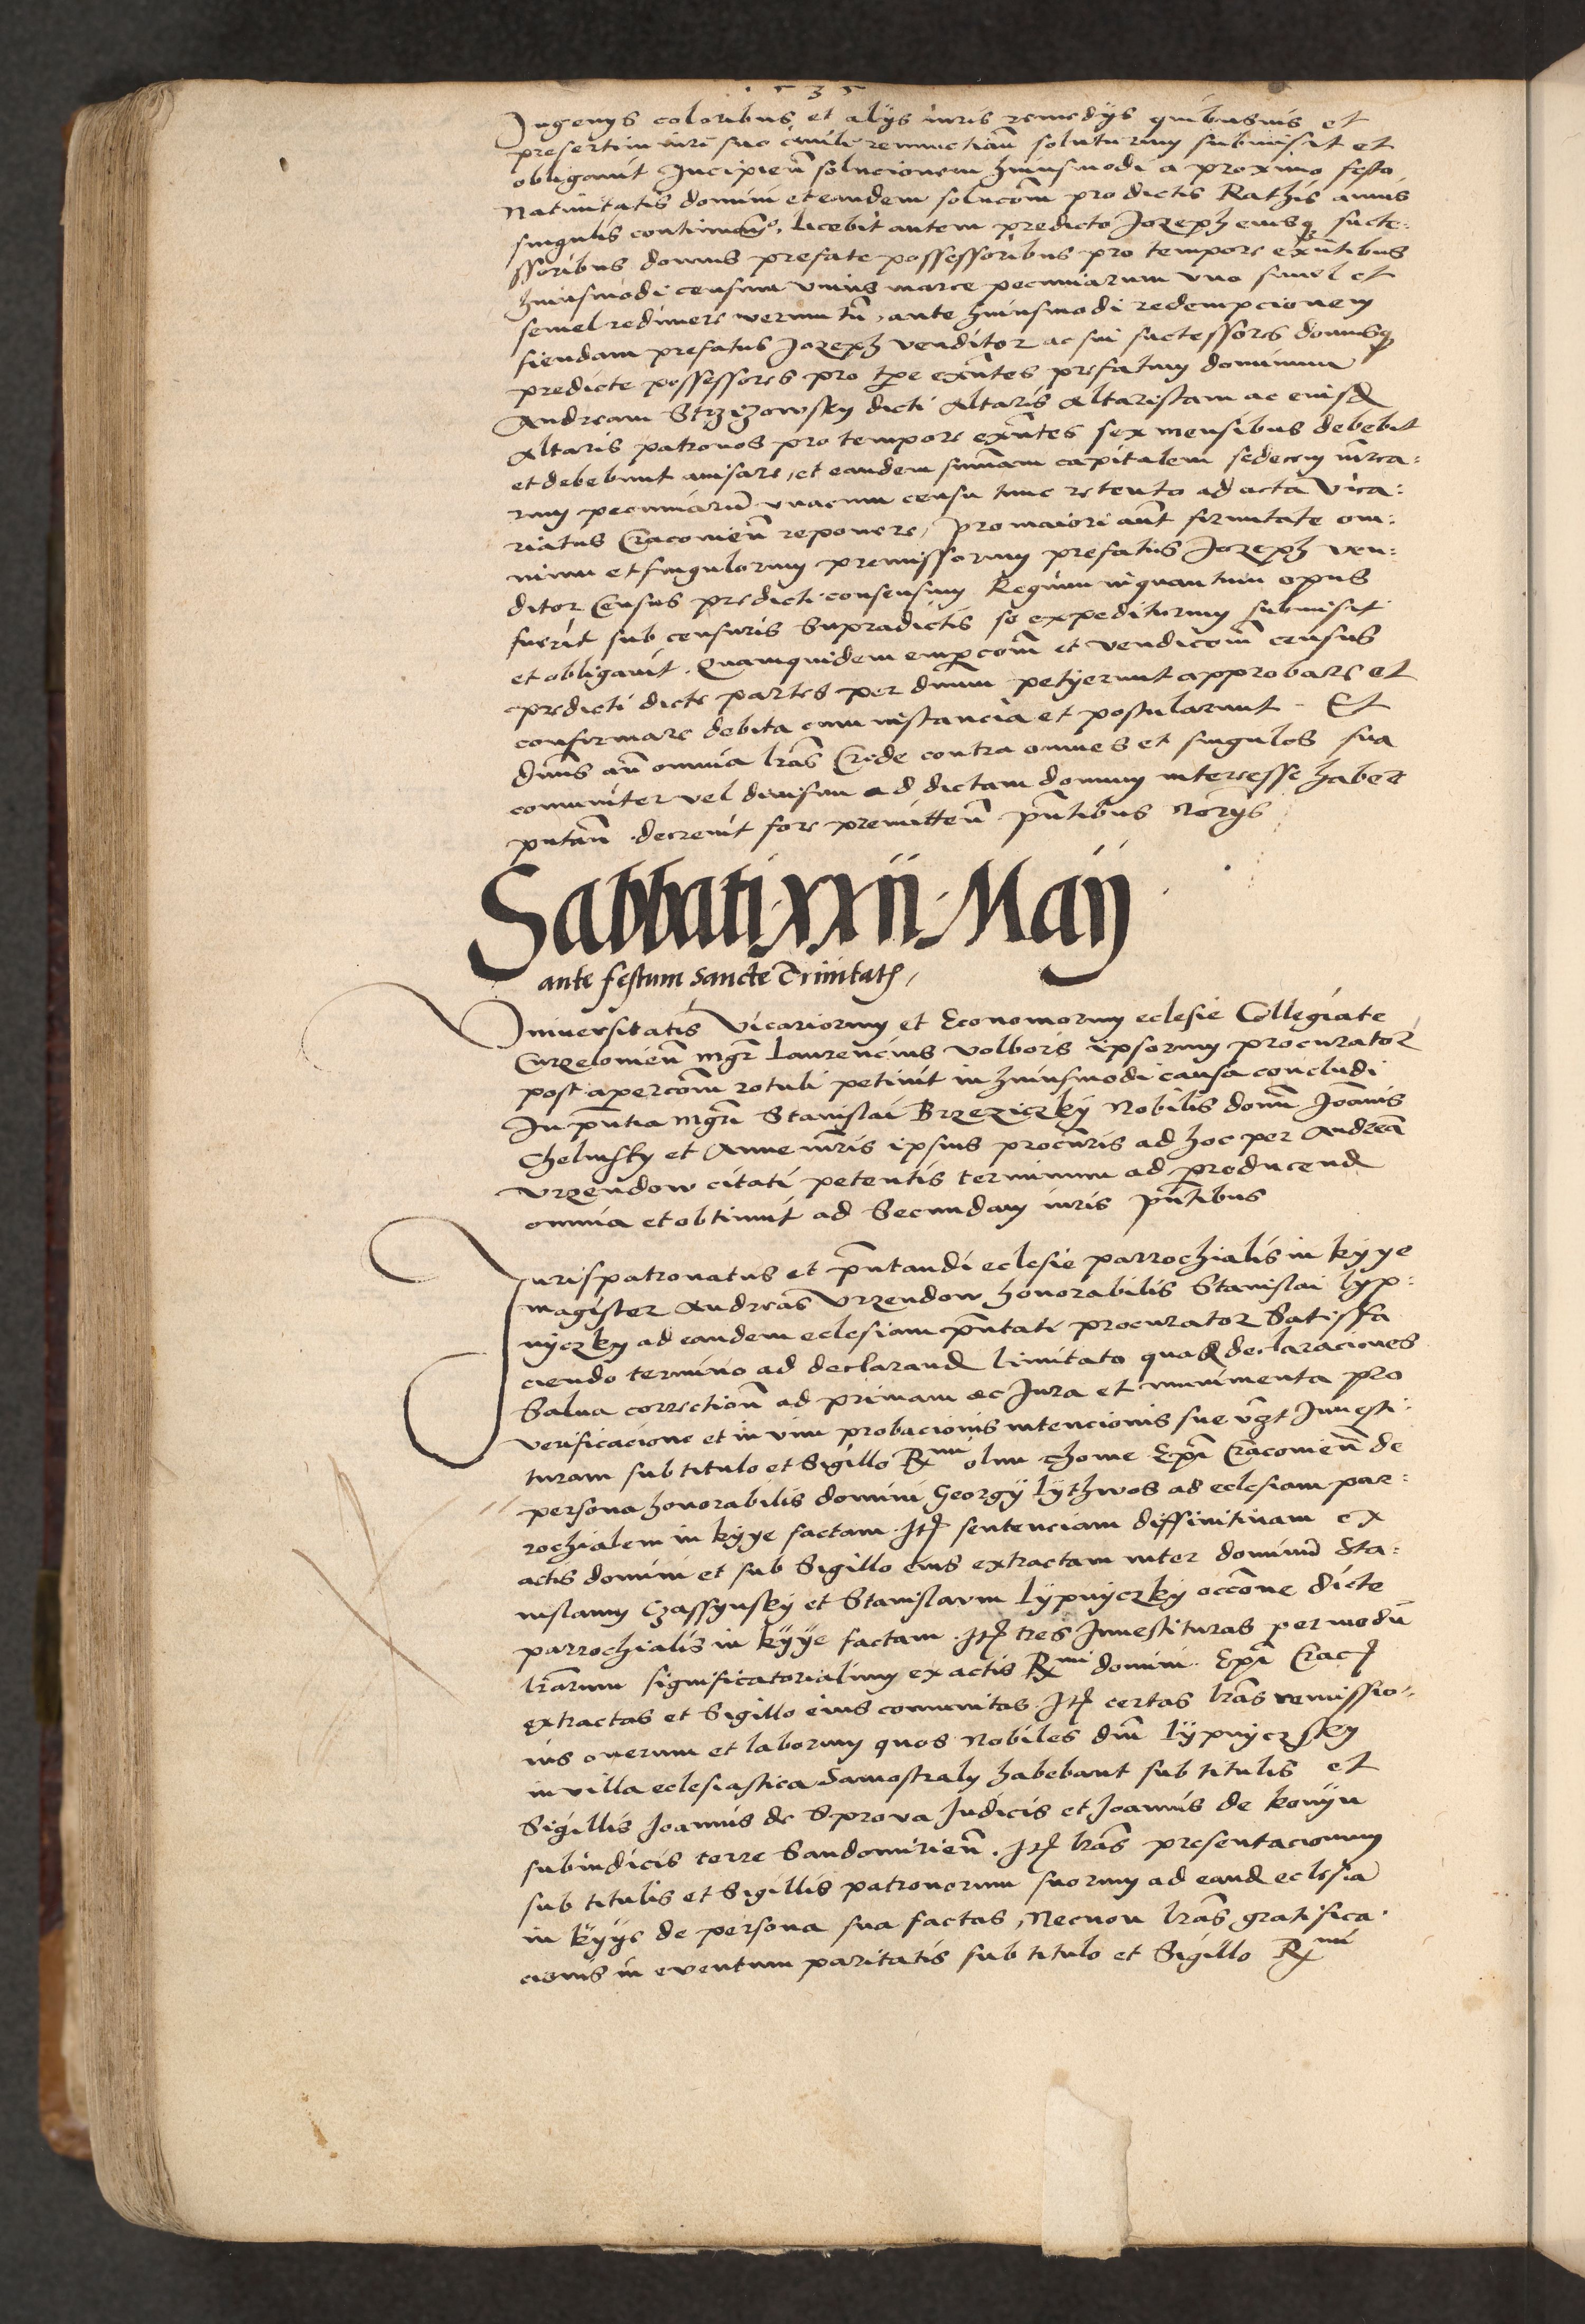 1535
Ingenys coloribus et alÿs iuris remedÿs quibusuis et
presertim iuri suo ciuili renunctiań soluturum submisit et
obligauit Incipień solucionem huiusmodi a proximo festo
Natiuitatis domini et eandem solucōm pro dictis Rathis annis
singulis continuań. licebit autem predicto Jozeph eiusq₃ succe:
ssoribus domus prefate possessoribus pro tempore exn̄tibus
huiusmodi censum vnius marce pecuniarum vno simul et
semel redimere verumtn̄, ante huiusmodi redempcionem
fiendam prefatus Jozeph venditor ac sui successores domusq₃
predicte possessores pro tp̄e exn̄tes prefatum dominum
Andream Strzӡowsky dicti Altaris Altaristam ac eiusd
Altaris patronos pro tempore exn̄tes sex mensibus debebit
et debebunt auisare, et eandem sum̄am capitalem sedecem mr̄ca:
rum pecuniarū vnacum censu tunc retento ad acta Vica:
riatus Cracouień reponere, pro maiori aūt firmitate om:
nium et singulorum premissorum prefatus Jozeph ven:
ditor Census predicti consensum Regium inquantum opus
fuerit sub censuris Supradictis se expediturum submisit
et obligauit. Quamquidem empcōm et vendicōm census
predicti dicte partes per dn̄um petÿerunt approbare et
confirmare debita cum instancia et postularunt. Et
dn̄us an̄ omnia lr̄as Cride contra omnes et singulos sua
comuniter vel diuisim ad dictam domum interesse habere
putań decreuit fore premitteń pn̄tibus Norÿs
Sabbati xxii Maÿ
ante festum sancte Trinitatis,
Vniuersitatis Vicariorum et Economorum eclesie Collegiate
Curzelouień mgr̄ Laurencius Volboris ipsorum procurator
post apercōm rotuli petiuit in huiusmodi causa concludi
In pn̄tia Mgr̄i Stanislai Brzeziczkÿ Nobilis domī Joānis
Chelmsky et Anne mr̄is ipsius procūris ad hoc per Andreā
Vrzendow citati petentis terminum ad producend
omnia et obtinuit ad Secundam iuris pn̄tibus
Jurispatronatus et pn̄tandi eclesie parrochialis in kÿye
magister Andreas Vrzendow honorabilis Stanislai lyp:
nyczky ad eandem eclesiam pn̄tati procurator Satisfa
ciendo termino ad declarand limitato quasd declaraciones
Salua correctioń ad primam ac Jura et munimenta pro
verificacione et in vim probacionis intencionis sue vȝt Inuesti:
turam sub titulo et Sigillo Rmi olim Thome Ep̄i Cracouień de
persona honorabilis domini Georgÿ lÿthwos ad eclesiam par:
rochialem in kÿye factam. Itꝫ sentenciam diffinitiuam ex
actis domini et sub Sigillo eius extractam inter dominū Sta:
nislaum Czassynskÿ et Stanislaum lÿpnÿczkÿ occōne dicte
parrochialis in kÿÿe factam. Itꝫ tres Inuestituras per modū
lr̄arum significatorialium ex actis Rmi domini Ep̄i Cracꝫ
extractas et Sigillo eius comunitas. Itꝫ certas lr̄as remissio:
nis onerum et laborum quos Nobiles dn̄i lÿpnÿczsky
in villa eclesiastica Samostraly habebant sub titulis et
Sigillis Joannis de Sprova Iudicis et Joannis de konÿn
subiudicis terre Sandomirień. Itꝫ lr̄as presentacionum
sub titulis et Sigillis patronorum suorum ad eand eclesiā
in kÿÿe de persona sua factas, Necnon lr̄as gratifica:
cionis in eventum paritatis sub titulo et Sigillo Rmi